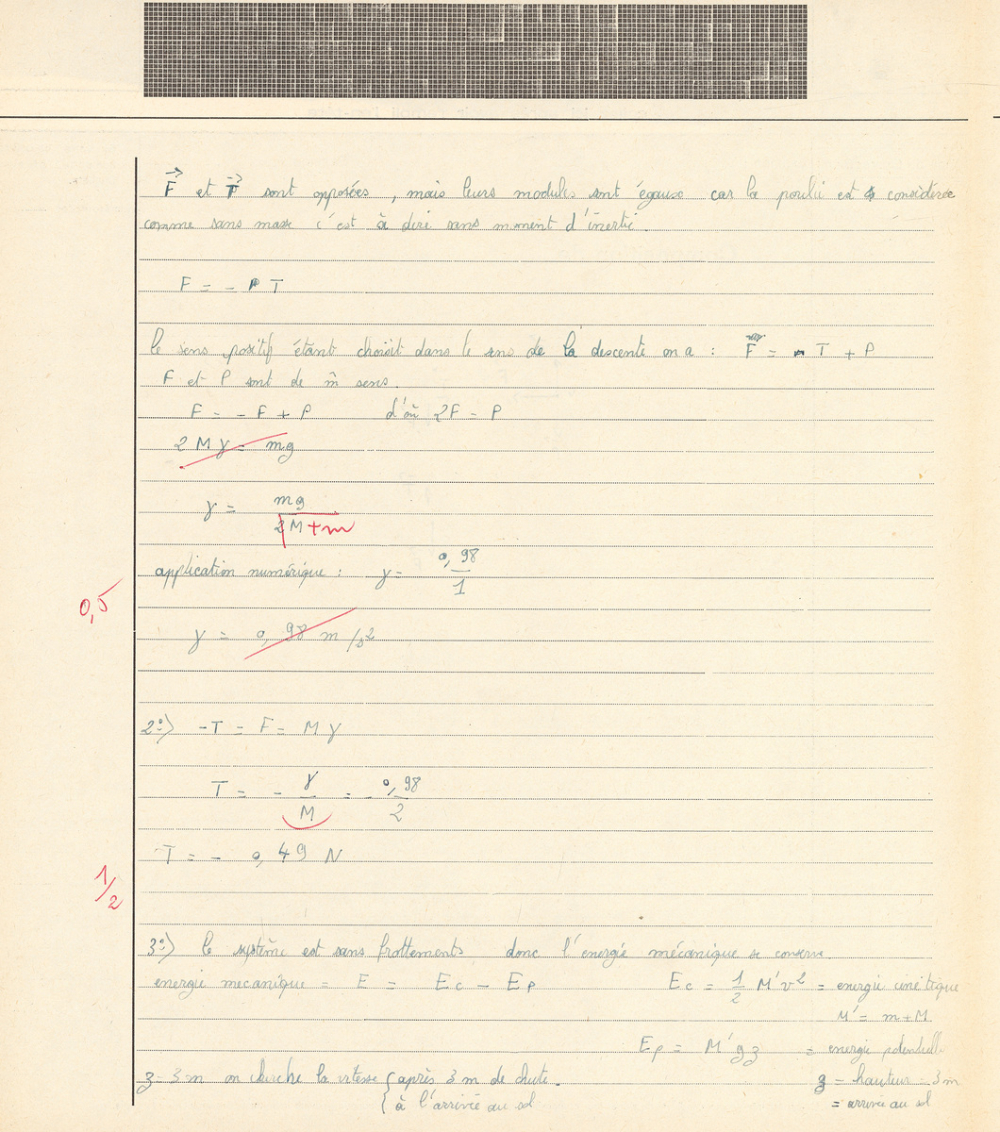 F et T sont opposées, mais leurs modules sont égaux car la poulie est considérée
comme sans masse c'est à dire sans moment d'inertie.
F = - T
le sens positif étant choisit dans le sens de la descente on a : F = - T + P
F et P sont de m̂ sens.
F = - F + P d'où 2F = P
2 M γ = mg
γ = mg / 2M +m
application numérique : γ = 0,98 / 1
0,5
γ = 0,98 m/s2
2°) -T = F = M γ
T = - γ / M = - 0,98 / 2
T = - 0,49 N
1/2
3°) le système est sans frottements donc l'énergie mécanique se conserve.
energie mecanique = E = Ec - Ep Ec = 1/2 M'v² = energie cinétique
M' = m+M
Ep = M'gz = energie potentielle
z = 3 m on cherche la vitesse { après 3 m de chute. z = hauteur = 3m
à l'arrivée au sol = arrivée au sol